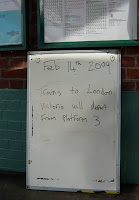 Feb 14th 2009
Trains to London
Victoria will depart
From Platform 3